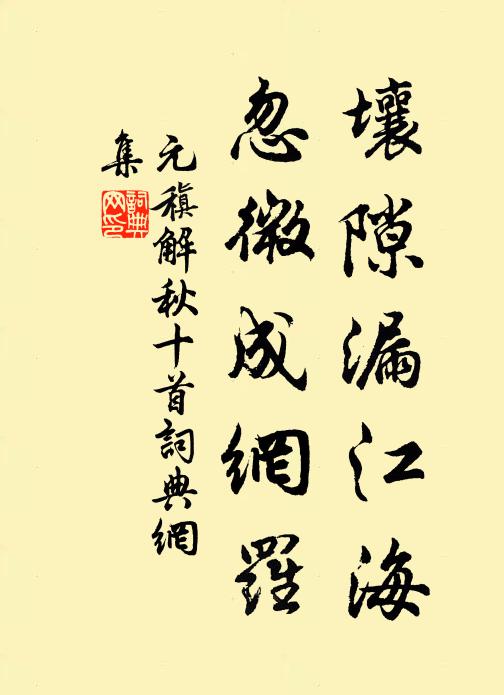 壤隙漏江海
忽微成網羅
元稹解秋十首詞典網
集
詞典網印